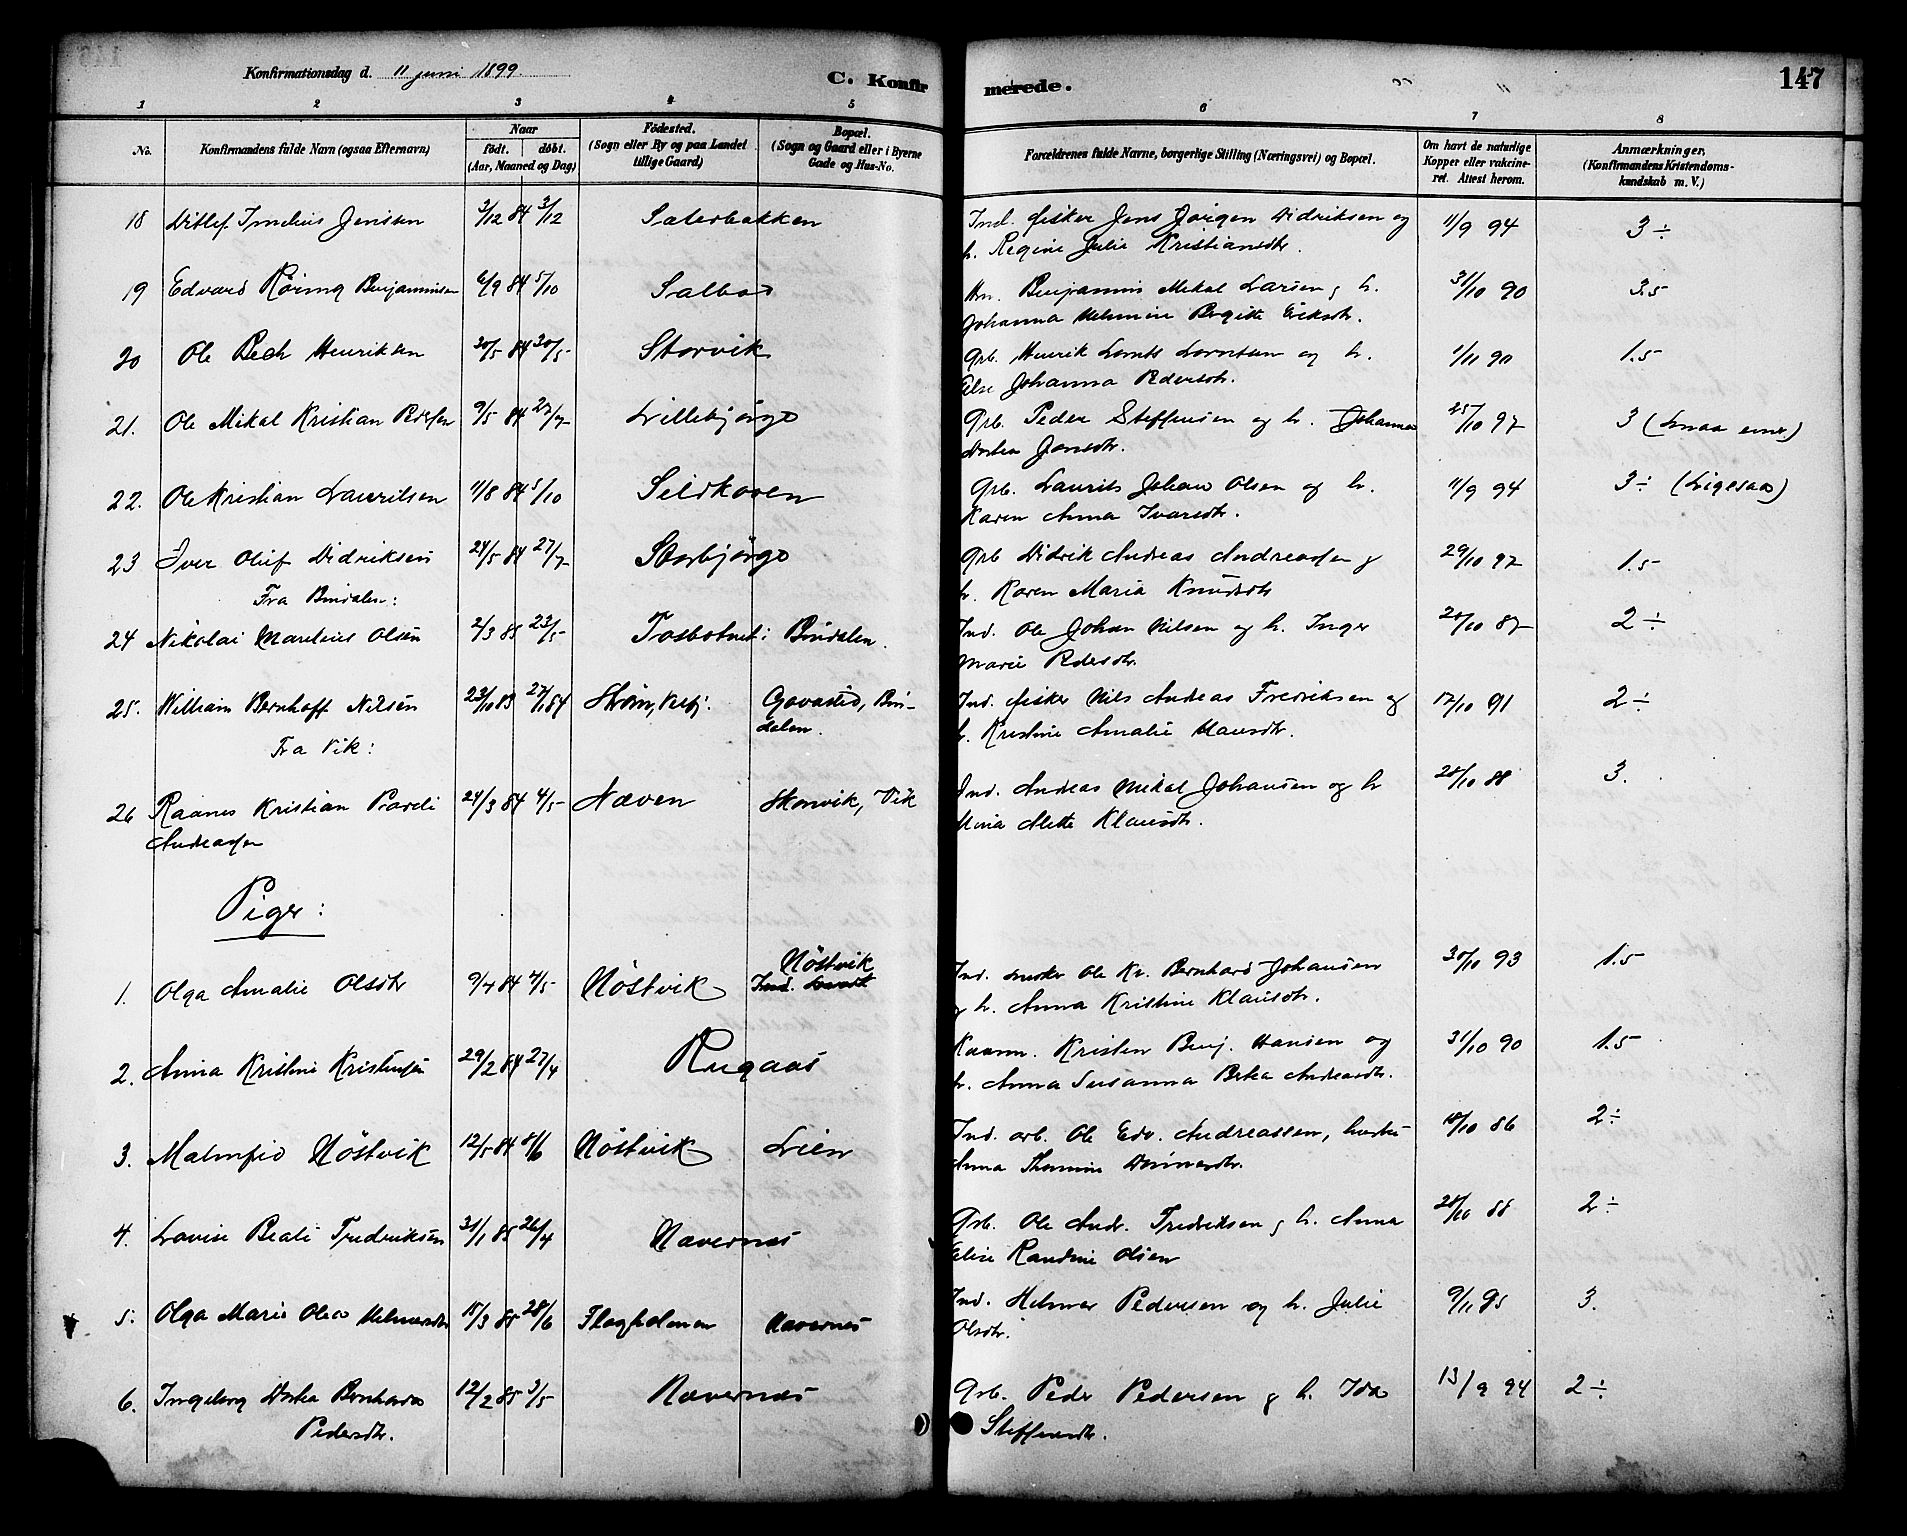 Konfirmationsdag d. 11 juni 1899. C. Konfirmerede. 147
1 2 3 4 5 6 7 8
No. Konfirmandens fulde Navn (ogsaa Efternavn) Naar födt. döbt. (Aar, Maaned og Dag) Födested. (Sogn eller By og paa Landet tillige Gaard) Bopæl. (Sogn og Gaard eller i Byerne Gade og Hus-No. Forældrenes fulde Navne, borgerlige Stilling (Næringsvei) og Bopæl. Om havt de naturlige Kopper eller vakcineret. Attest herom. Anmærkninger, (Konfirmandens Kristendomskundskab m. V.)
18 Ditlef Jensen 3/12 84 3/12 Saterbakken Ind. fisker Jens Jörgen Didriksen og
h. Regine Julie Kristiansdtr. 11/9 94 3 ÷
19 Edvard Röring Benjaminsen 6/9 84 5/10 Salbo Benjamin Mikal Larsen, h.
Johanna Birgitte Eriksdtr. 31/10 90 3.5
20 Ole Bech Henriksen 30/5 84 20/5 Storvik Grb. Henrik Lornts Lorntsen og h.
Else Johanna Pedersdtr. 1/11 90 1.5
21. Ole Mikal Kristian Peders̄en 9/5 84 27/7 Lillebjörgo Grb. Peder Steffensen og h. Johanna
Dortea Jonsdtr. 25/10 97 3 (Smaa evner)
22. Ole Kristian Lauritsen 11/8 84 5/10 Seldkoven Grb. Laurits Johan Olsen og h.
Karen Anna Ivarsdtr. 11/9 94 3 ÷ (Ligesaa)
23 Iver Oluf Didriksen 24/5 84 27/7 Storbjörgo Grb Didrik Andreas Andreassen g
h. Karen Maria Knudsdtr 29/10 97 1.5
Fra Bindalen:
24 Nikolai Martinus Olsen 2/3 85 23/5 Tosbotnet i Bindalen. Ind. Ole Johan Nilsen og h. Inger
Marie Pedersdtr. 20/10 87 2 ÷
25. William Bernhoff Nilsen 23/10 83 27/1 84 Ström, Velfj. Gaarstid, Bindalen. Ind. fisker Nils Andreas Fredriksen og
h. Kristine Amalie Hansdtr. 17/10 91 2 ÷
Fra Vik:
26 Raanes Kristian Pareli
Andreassen 24/3 84 4/5 Næven Skomvik, Vik Ind. Andreas Mikal Johansen og h
Mina Alette Klausdtr. 28/10 88 3.
Piger:
1. Olga Amalie Olsdtr 9/4 84 4/5 Nöstvik Nöstvik Ind. snedker Ole Kr. Bernhard Johansen
g h. Anna Kristine Klausdtr. 30/10 93 1.5
2. Anna Kristine Kristensen 29/2 84 27/4 Rugaas Kaarm. Kristen Benj. Hansen og
h. Anna Susanna Berkea Andreasdtr. 31/10 90 1.5
3. Malmfrid Nöstvik 12/5 84 8/6 Nöstvik Lien Ind. arb. Ole Edv. Andreassen, hustru
Anna Thomine 18/10 86 2 ÷
4. Lovise Beali Fredriksen 31/1 85 26/4 Nævernes Grb. Ole Andr. Fredriksen g h. Anna
Elise Randine Olsen 28/10 88 2 ÷
5. Olga Marie Olea Helmersdtr 18/3 85 28/6 Flagholmen Nævernes Ind. Helmer Pedersen og h. Julie
Olsdtr. 9/11 95 3.
6. Ingeborg Dortea Bernharda
Pedersdtr. 12/2 85 3/5 Nævernes Grb. Peder Pedersen g h. Ida
Steffensdtr. 13/9 94 2 ÷